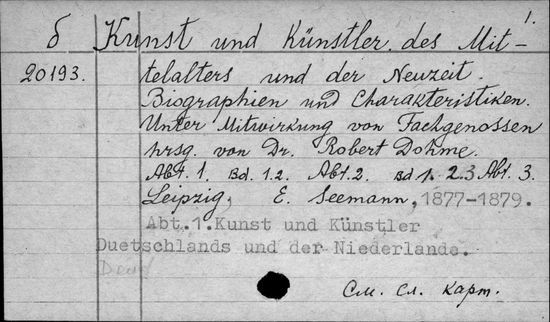 1.
б Kunst und Künstler des Mit-
20193. telalters und der Neuzeit.
Biographien und Charakteristiken.
Unter Mitwirkung von Fachgenossen
hrsg. von Dr. Robert Dohme.
Abt. 1. Bd. 1.2. Abt. 2. Bd 1. 2.3 Abt. 3.
Leipzig, E. Seemann, 1877-1879.
Abt.1.Kunst und Künstler
Duetschlands und der Niederlande.
См. сл. карт.